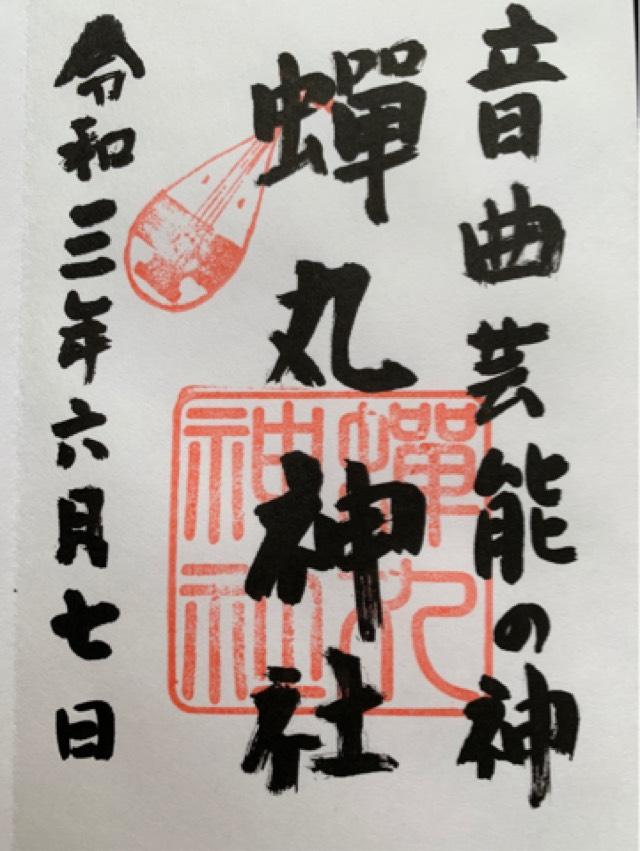 音曲芸能の神
蝉丸神社
蝉丸神社
令和三年六月七日